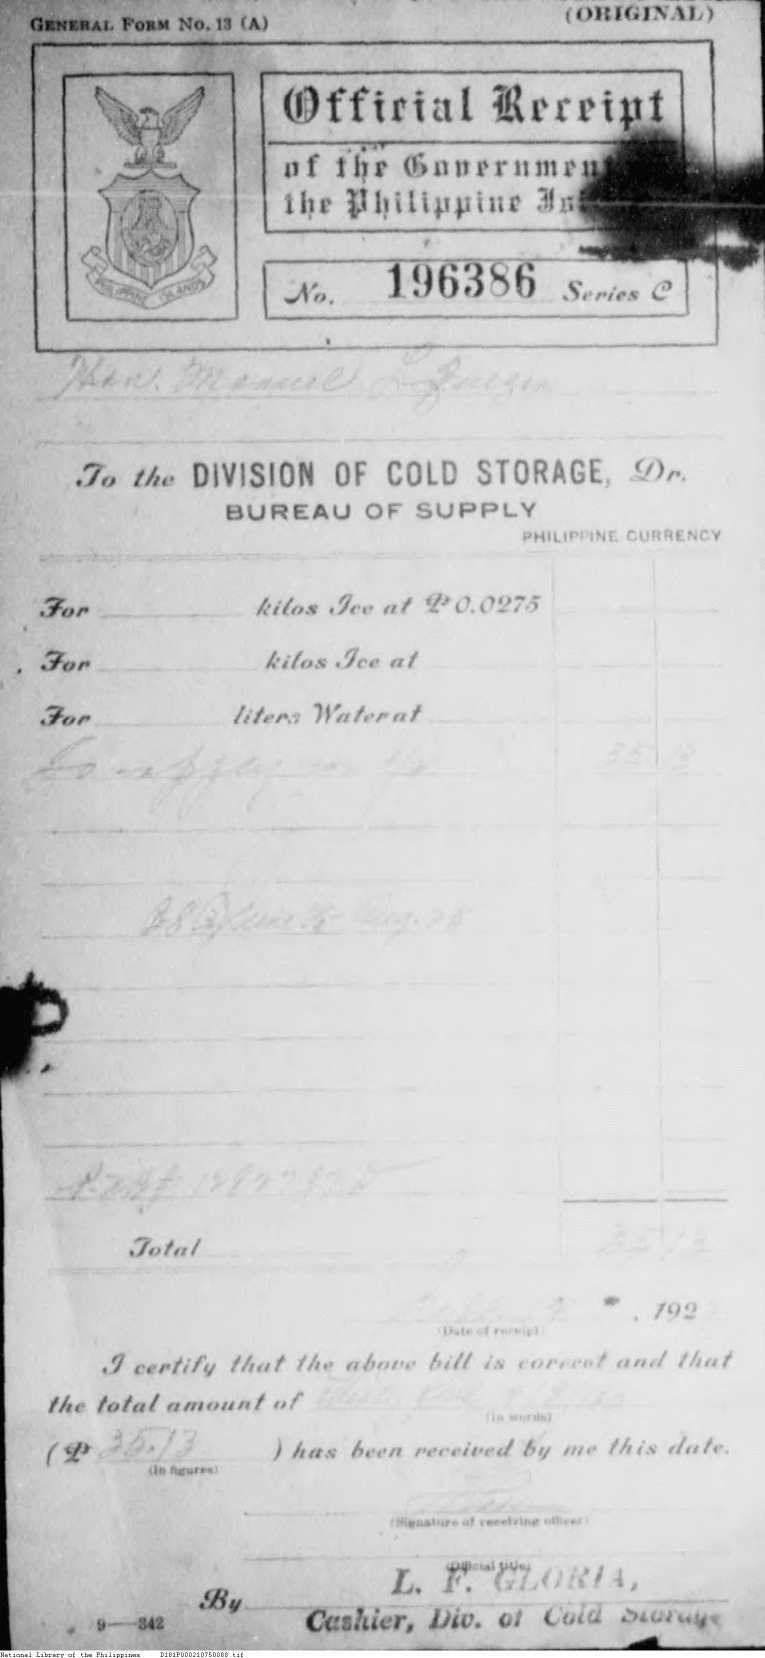 GENERAL FORM NO. 13 (A)
(ORIGINAL)
Official Receipt
of the Government
the Philippine
PHILIPPINE ISLANDS
No. 196386 Series C
Hon. Manuel L. Quezon
To the DIVISION OF COLD STORAGE, Dr.
BUREAU OF SUPPLY
PHILIPPINE CURRENCY
For kilos Ice at ₱0.0275
For kilos Ice at
For liters Water at
35 13
Total 35 13
, 192
(Date of receipt)
I certify that the above bill is correct and that
the total amount of
(In words)
(₱ 35.13 ) has been received by me this date.
(In figures)
(Signature of receiving officer)
(Official title)
L. F. GLORIA,
By
Cashier, Div. of Cold Storage
9—342
National Library of the Philippines D181P000210750088.tif